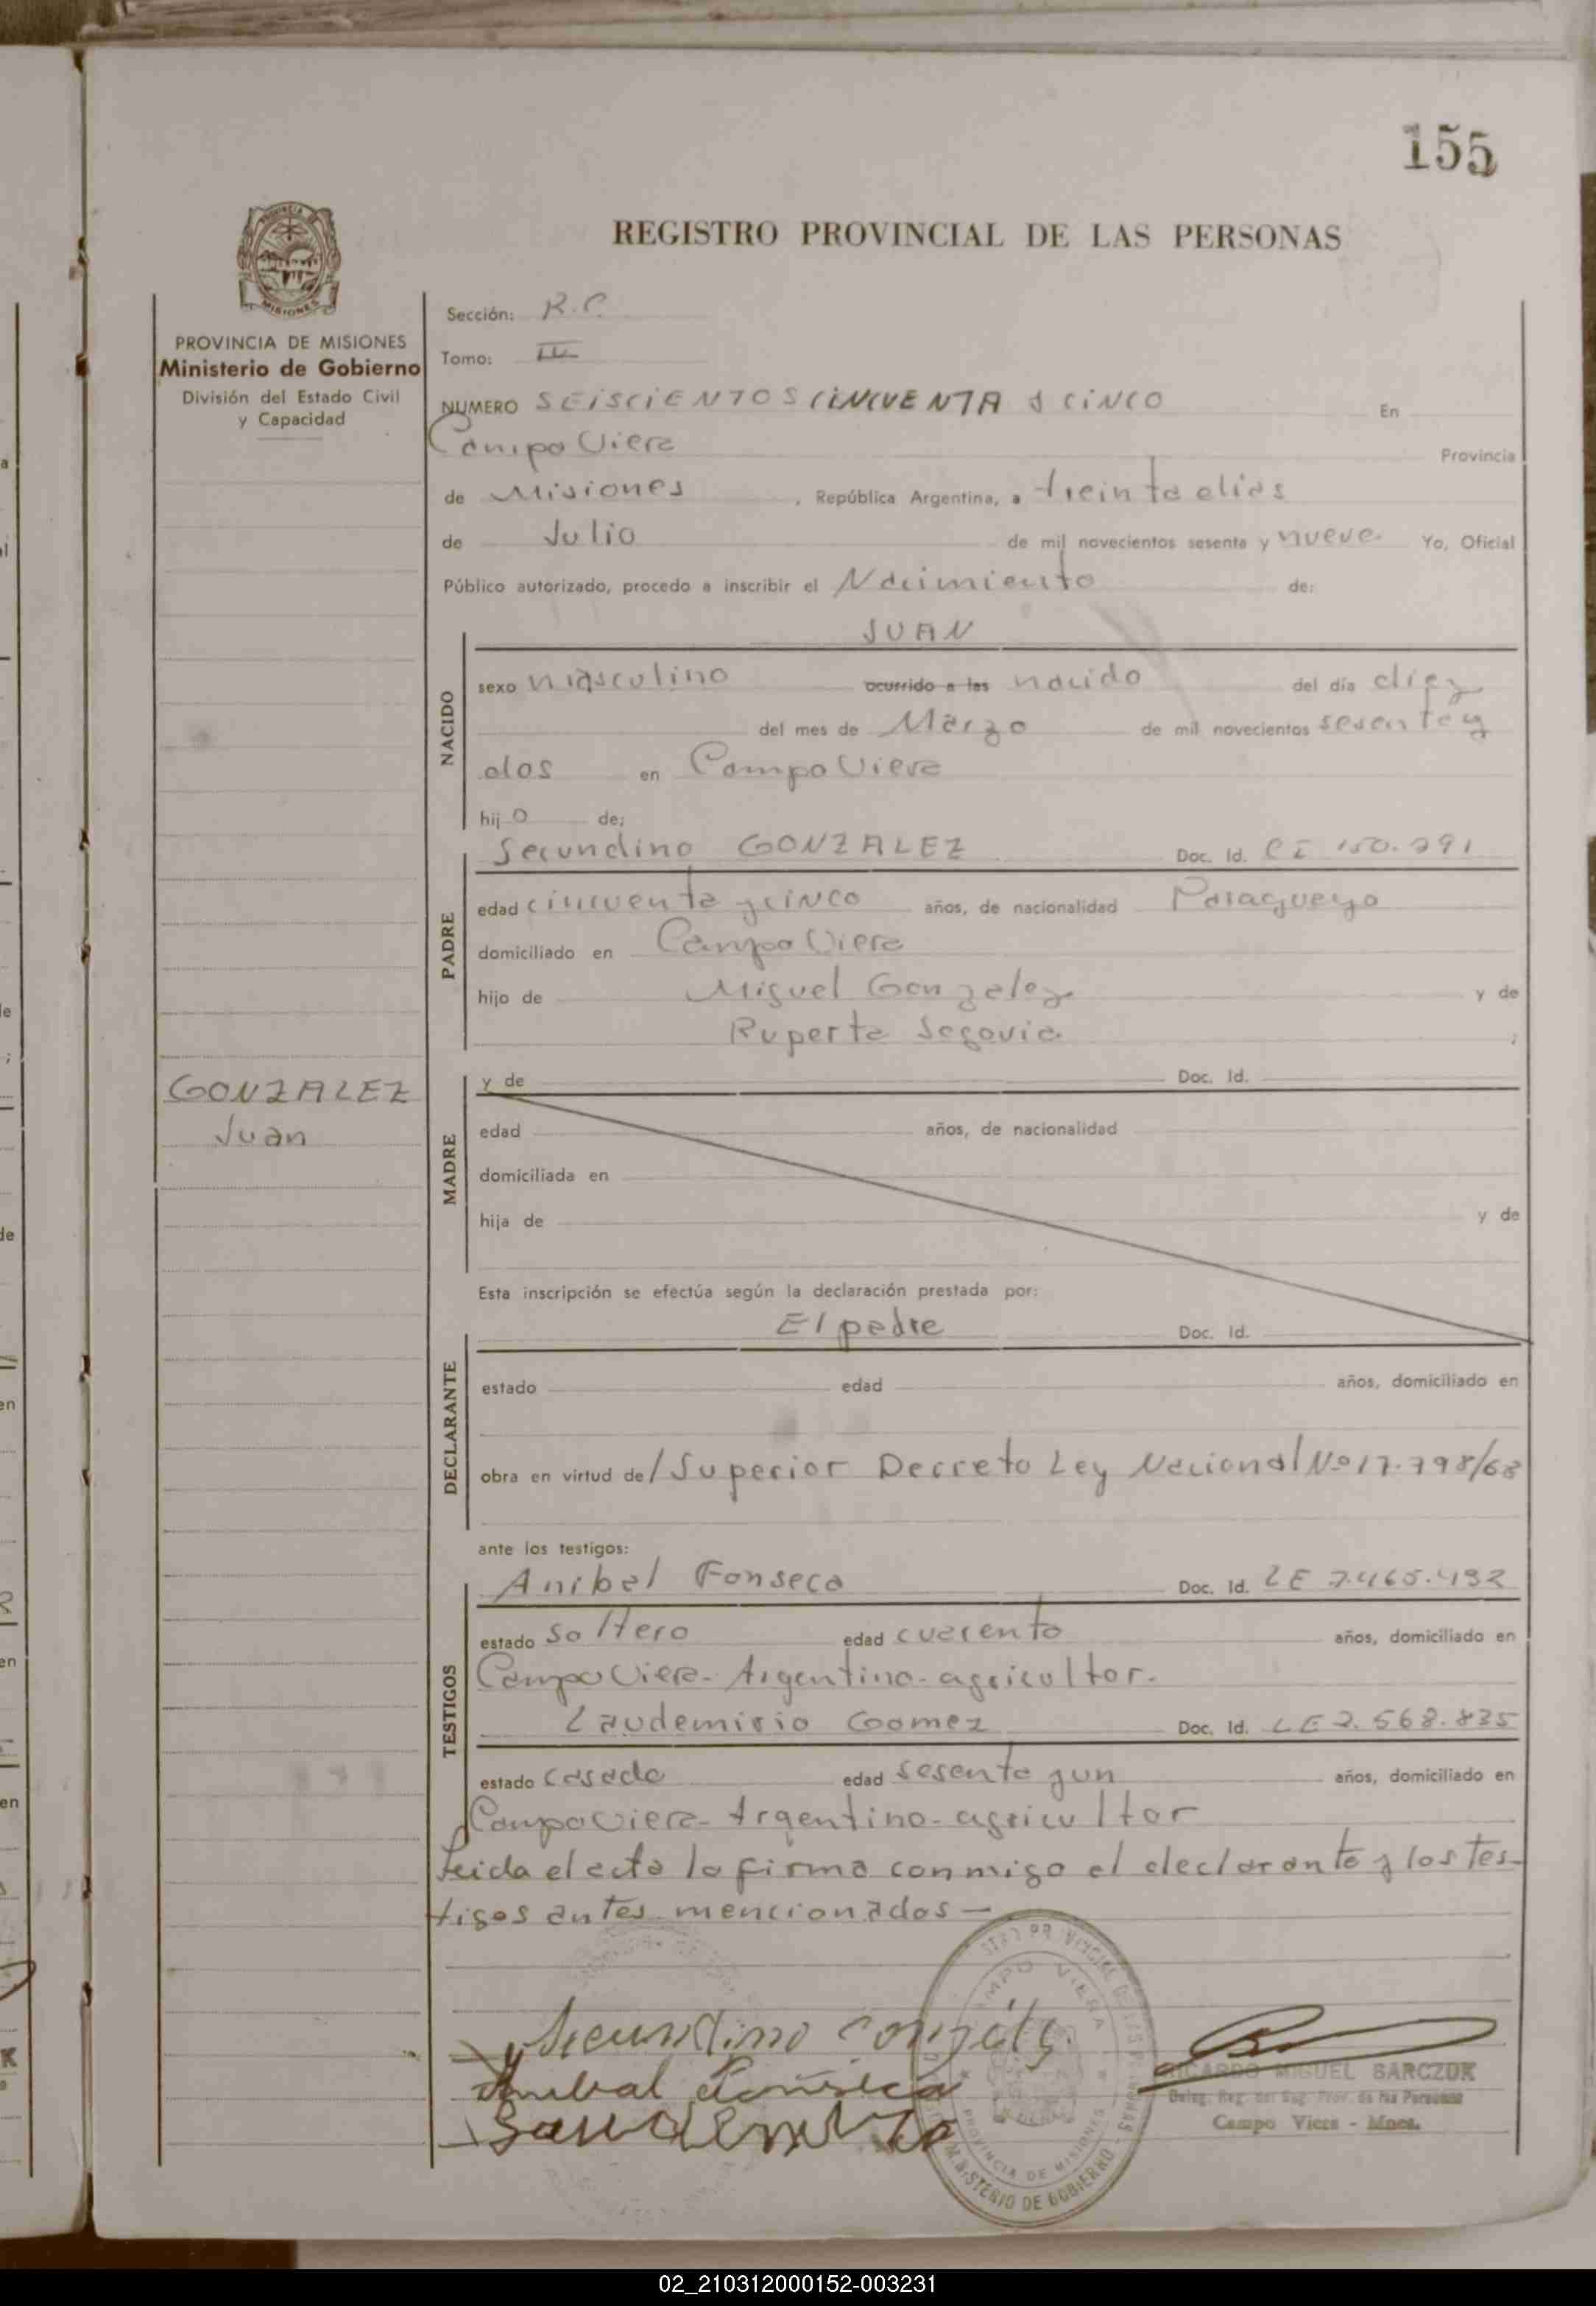 155
REGISTRO PROVINCIAL DE LAS PERSONAS
PROVINCIA DE MISIONES
Ministerio de Gobierno
División del Estado Civil
y Capacidad
Sección: R.C.
Tomo: III
NUMERO SEISCIENTOS CINCUENTA y CINCO En
Campo Viera Provincia
de Misiones, República Argentina, a treinta dias
de Julio de mil novecientos sesenta y nueve Yo, Oficial
Público autorizado, procedo a inscribir el Nacimiento de:
JUAN
NACIDO
sexo masculino ocurrido a las nacido del día diez
del mes de Marzo de mil novecientos sesenta y
dos en Campo Viera
hijo de;
Secundino GONZALEZ Doc. Id. CI
PADRE
edad cincuenta y cinco años, de nacionalidad Paraguayo
domiciliado en Campo Viera
hijo de Miguel Gonzalez y de
Ruperta Segovia ;
GONZALEZ
Juan
MADRE
y de Doc. Id.
edad años, de nacionalidad
domiciliada en
hija de y de
Esta inscripción se efectúa según la declaración prestada por:
El padre Doc. Id.
DECLARANTE
estado edad años, domiciliado en
obra en virtud de/Superior Decreto Ley Nacional Nº 17.798/68
ante los testigos:
Anibal Fonseca Doc. Id. LE 7.465.432
TESTIGOS
estado soltero edad cuarenta años, domiciliado en
Campo Viera- Argentino- agricultor.
Laudemirio Gomez Doc. Id. LE 2.568.835
estado casado edad sesenta y un años, domiciliado en
Campo Viera- Argentino- agricultor
Leida el acta la firma conmigo el declarante y los tes-
tigos antes mencionados—
Secundino
Anibal Fonseca
CAMPO VIERA
PROVINCIA DE MISIONES
MINISTERIO DE GOBIERNO
RICARDO MIGUEL SARCZUK
Deleg. Reg. del Reg. Prov. de las Personas
Campo Viera - Mnes.
02_210312000152-003231